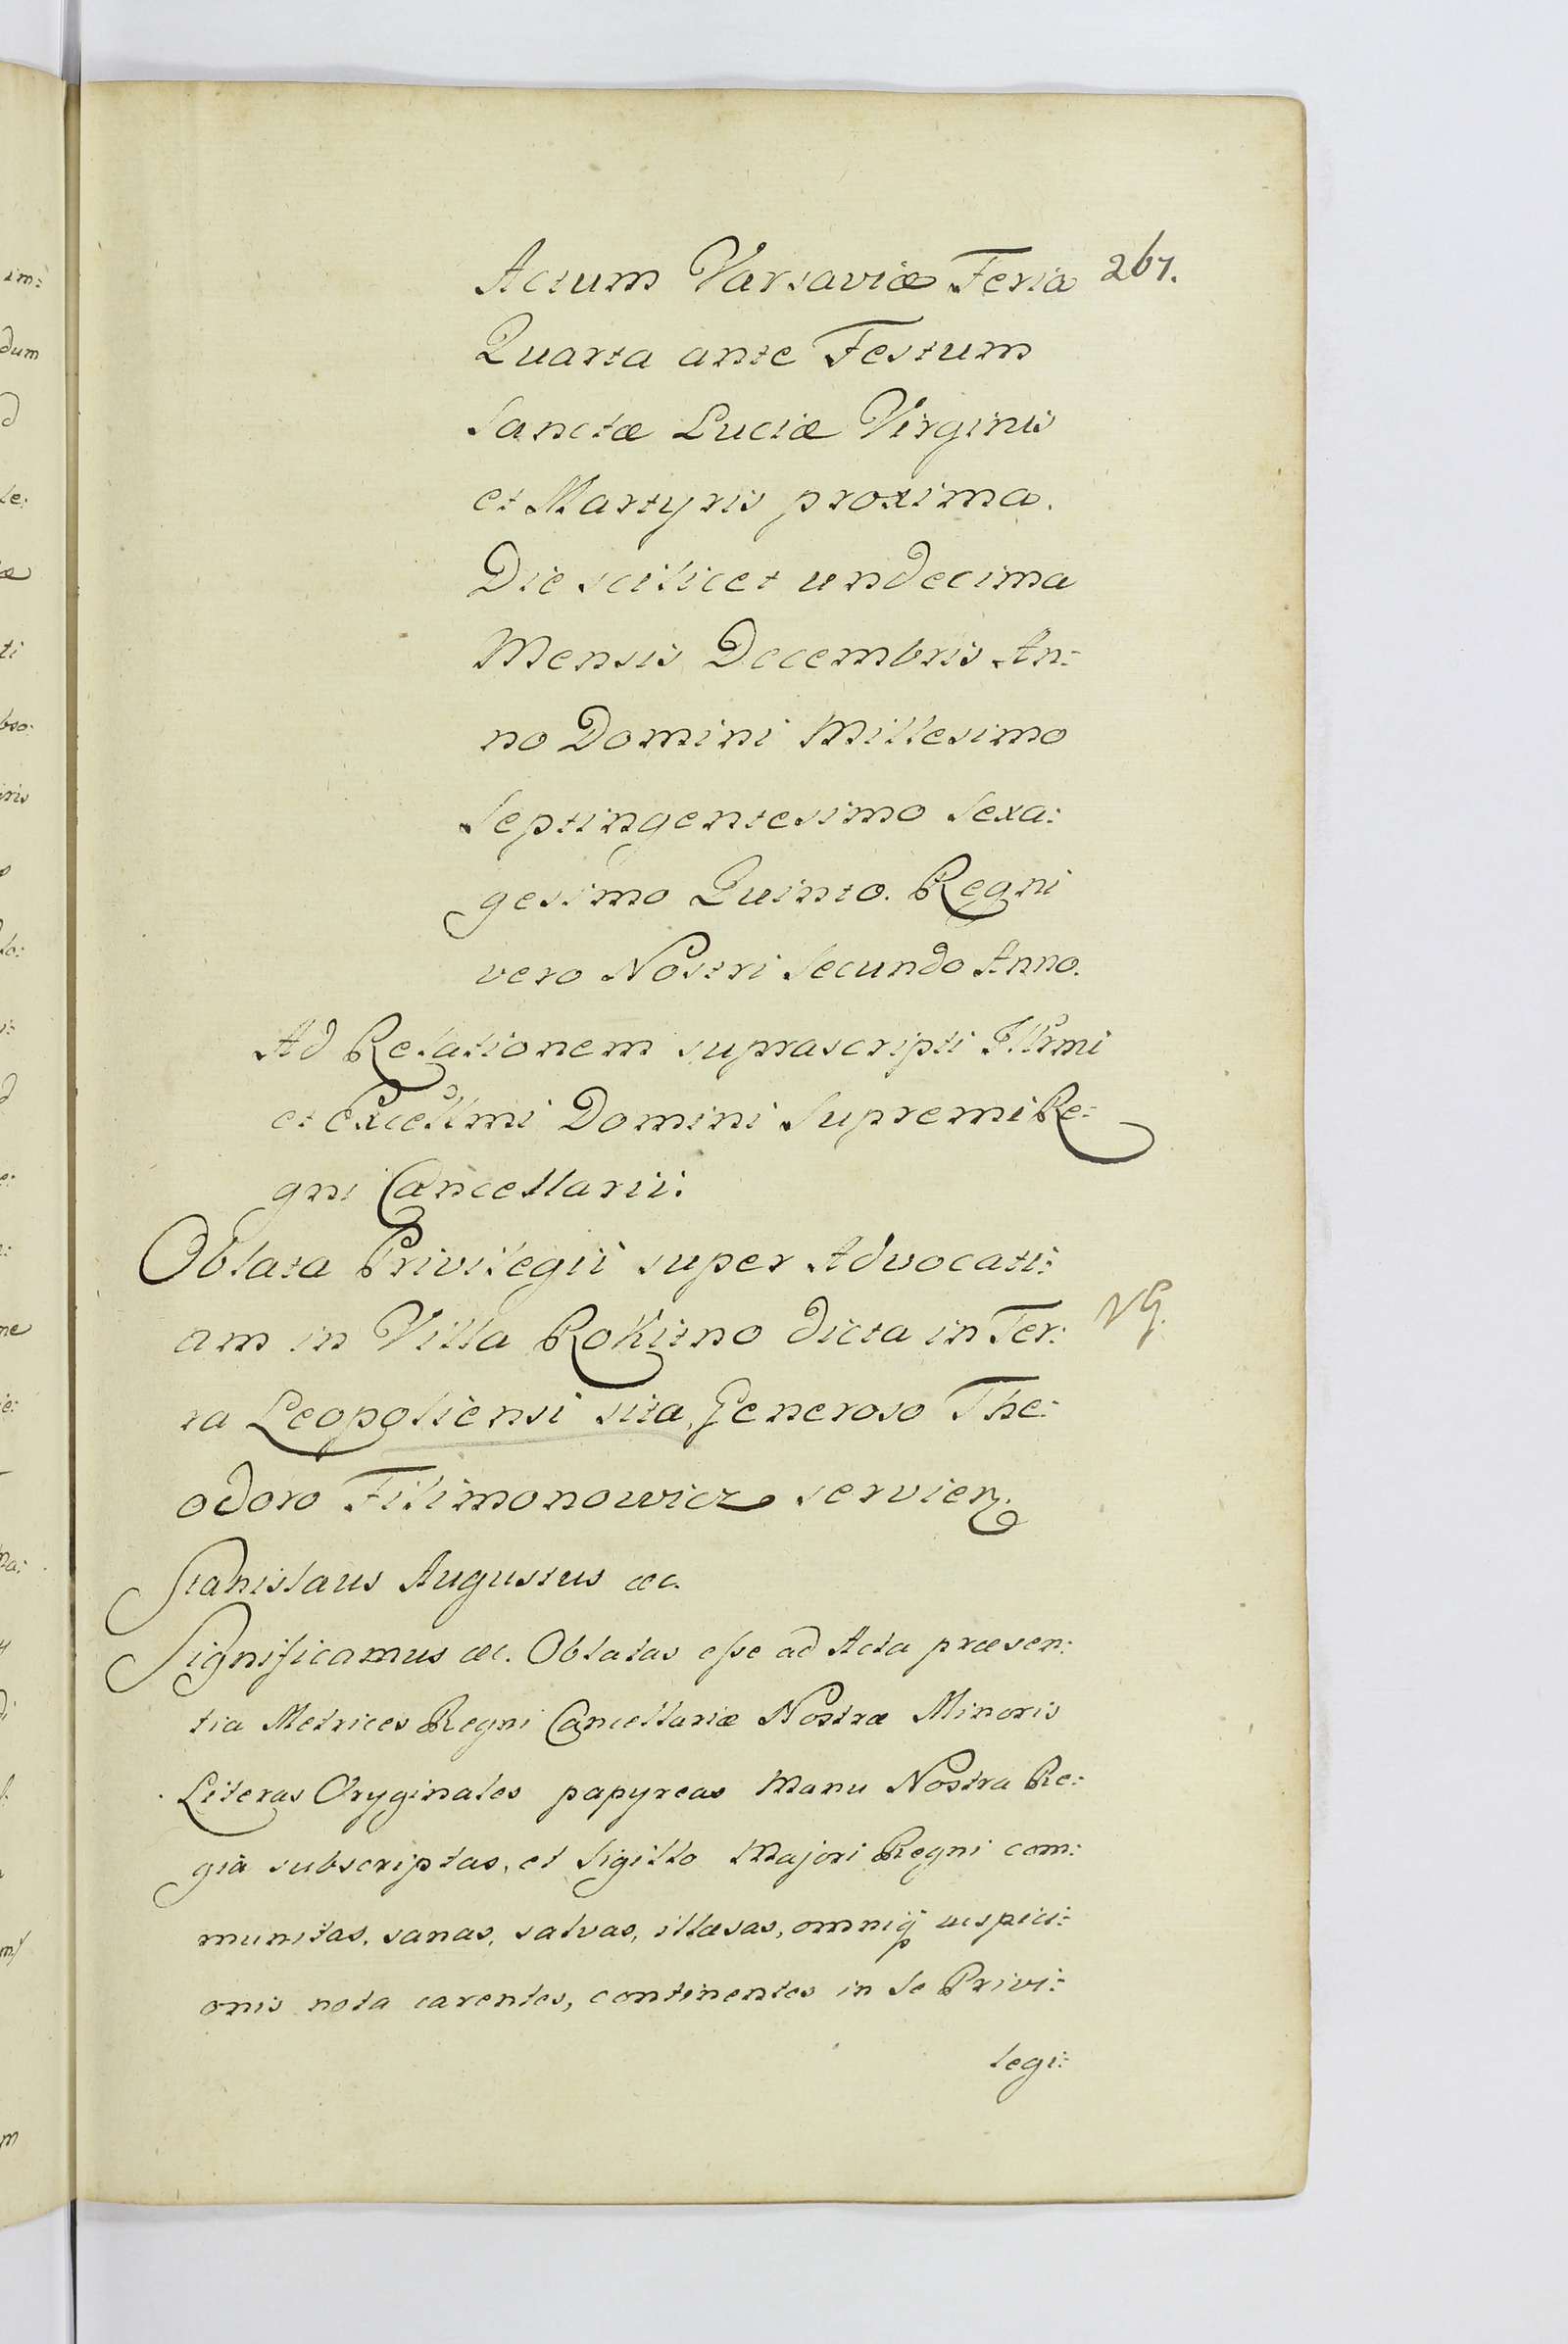 Actum Varsaviæ Feria 267.
Quarta ante Festum
Sanctæ Luciæ Virginis
et Martyris proxima.
Die scilicet undecima
Mensis Decembris An:
no Domini Millesimo
Septingentesimo Sexa:
gesimo Quinto. Regni
vero Nostri Secundo Anno.
Ad Relationem suprascripti Illrmi
et Excellmi Domini Supremi Re:
gni Cancellarii.
Oblata Privilegii super Advocati:
am in Villa Rokitno dicta in Ter:
ra Leopoliensi sita, Generoso The:
odoro Filimonowicz servien.
Stanislaus Augustus &c.
Significamus &c. Oblatas eſse ad Acta præsen:
tia Metrices Regni Cancellariæ Nostræ Minoris
Literas Oryginales papyreas Manu Nostra Re:
gia subscriptas, et Sigillo Majori Regni com:
munitas, sanas, salvas, illæsas, omniq suspici:
onis nota carentes, continentes in se Privi:
legi: